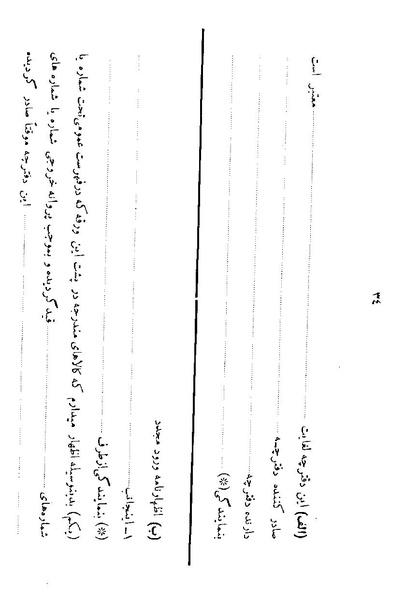 ۳٤
(الف) این دفترچه لغایت ........ معتبر است
صادر کننده دفترچه ........
دارنده دفترچه ........
بنمایندگی(※) ........
(ب) اظهارنامه ورود مجدد
۱ــ اینجانب ........
(※) بنمایندگی ازطرف ........
(یکم) بدینوسیله اظهار میدارم که کالاهای مندرجه در پشت این ورقه که درفهرست عمومی تحت شماره یا
شماره‌های ........ قیدگردیده و بموجب پروانه خروجی شماره یا شماره های
........ این دفترچه موقتاً صادر گردیده